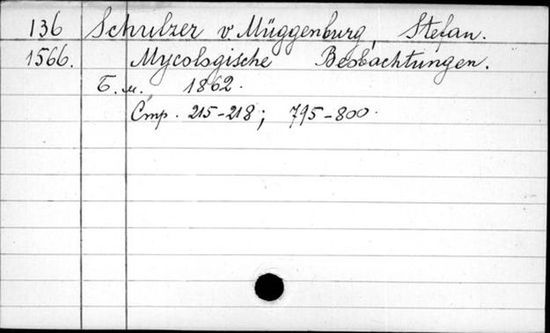 136 Schulzer v Müggenburg, Stefan.
1566. Mycologische Beobachtungen.
Б. м., 1862.
Стр. 215-218; 795-800.